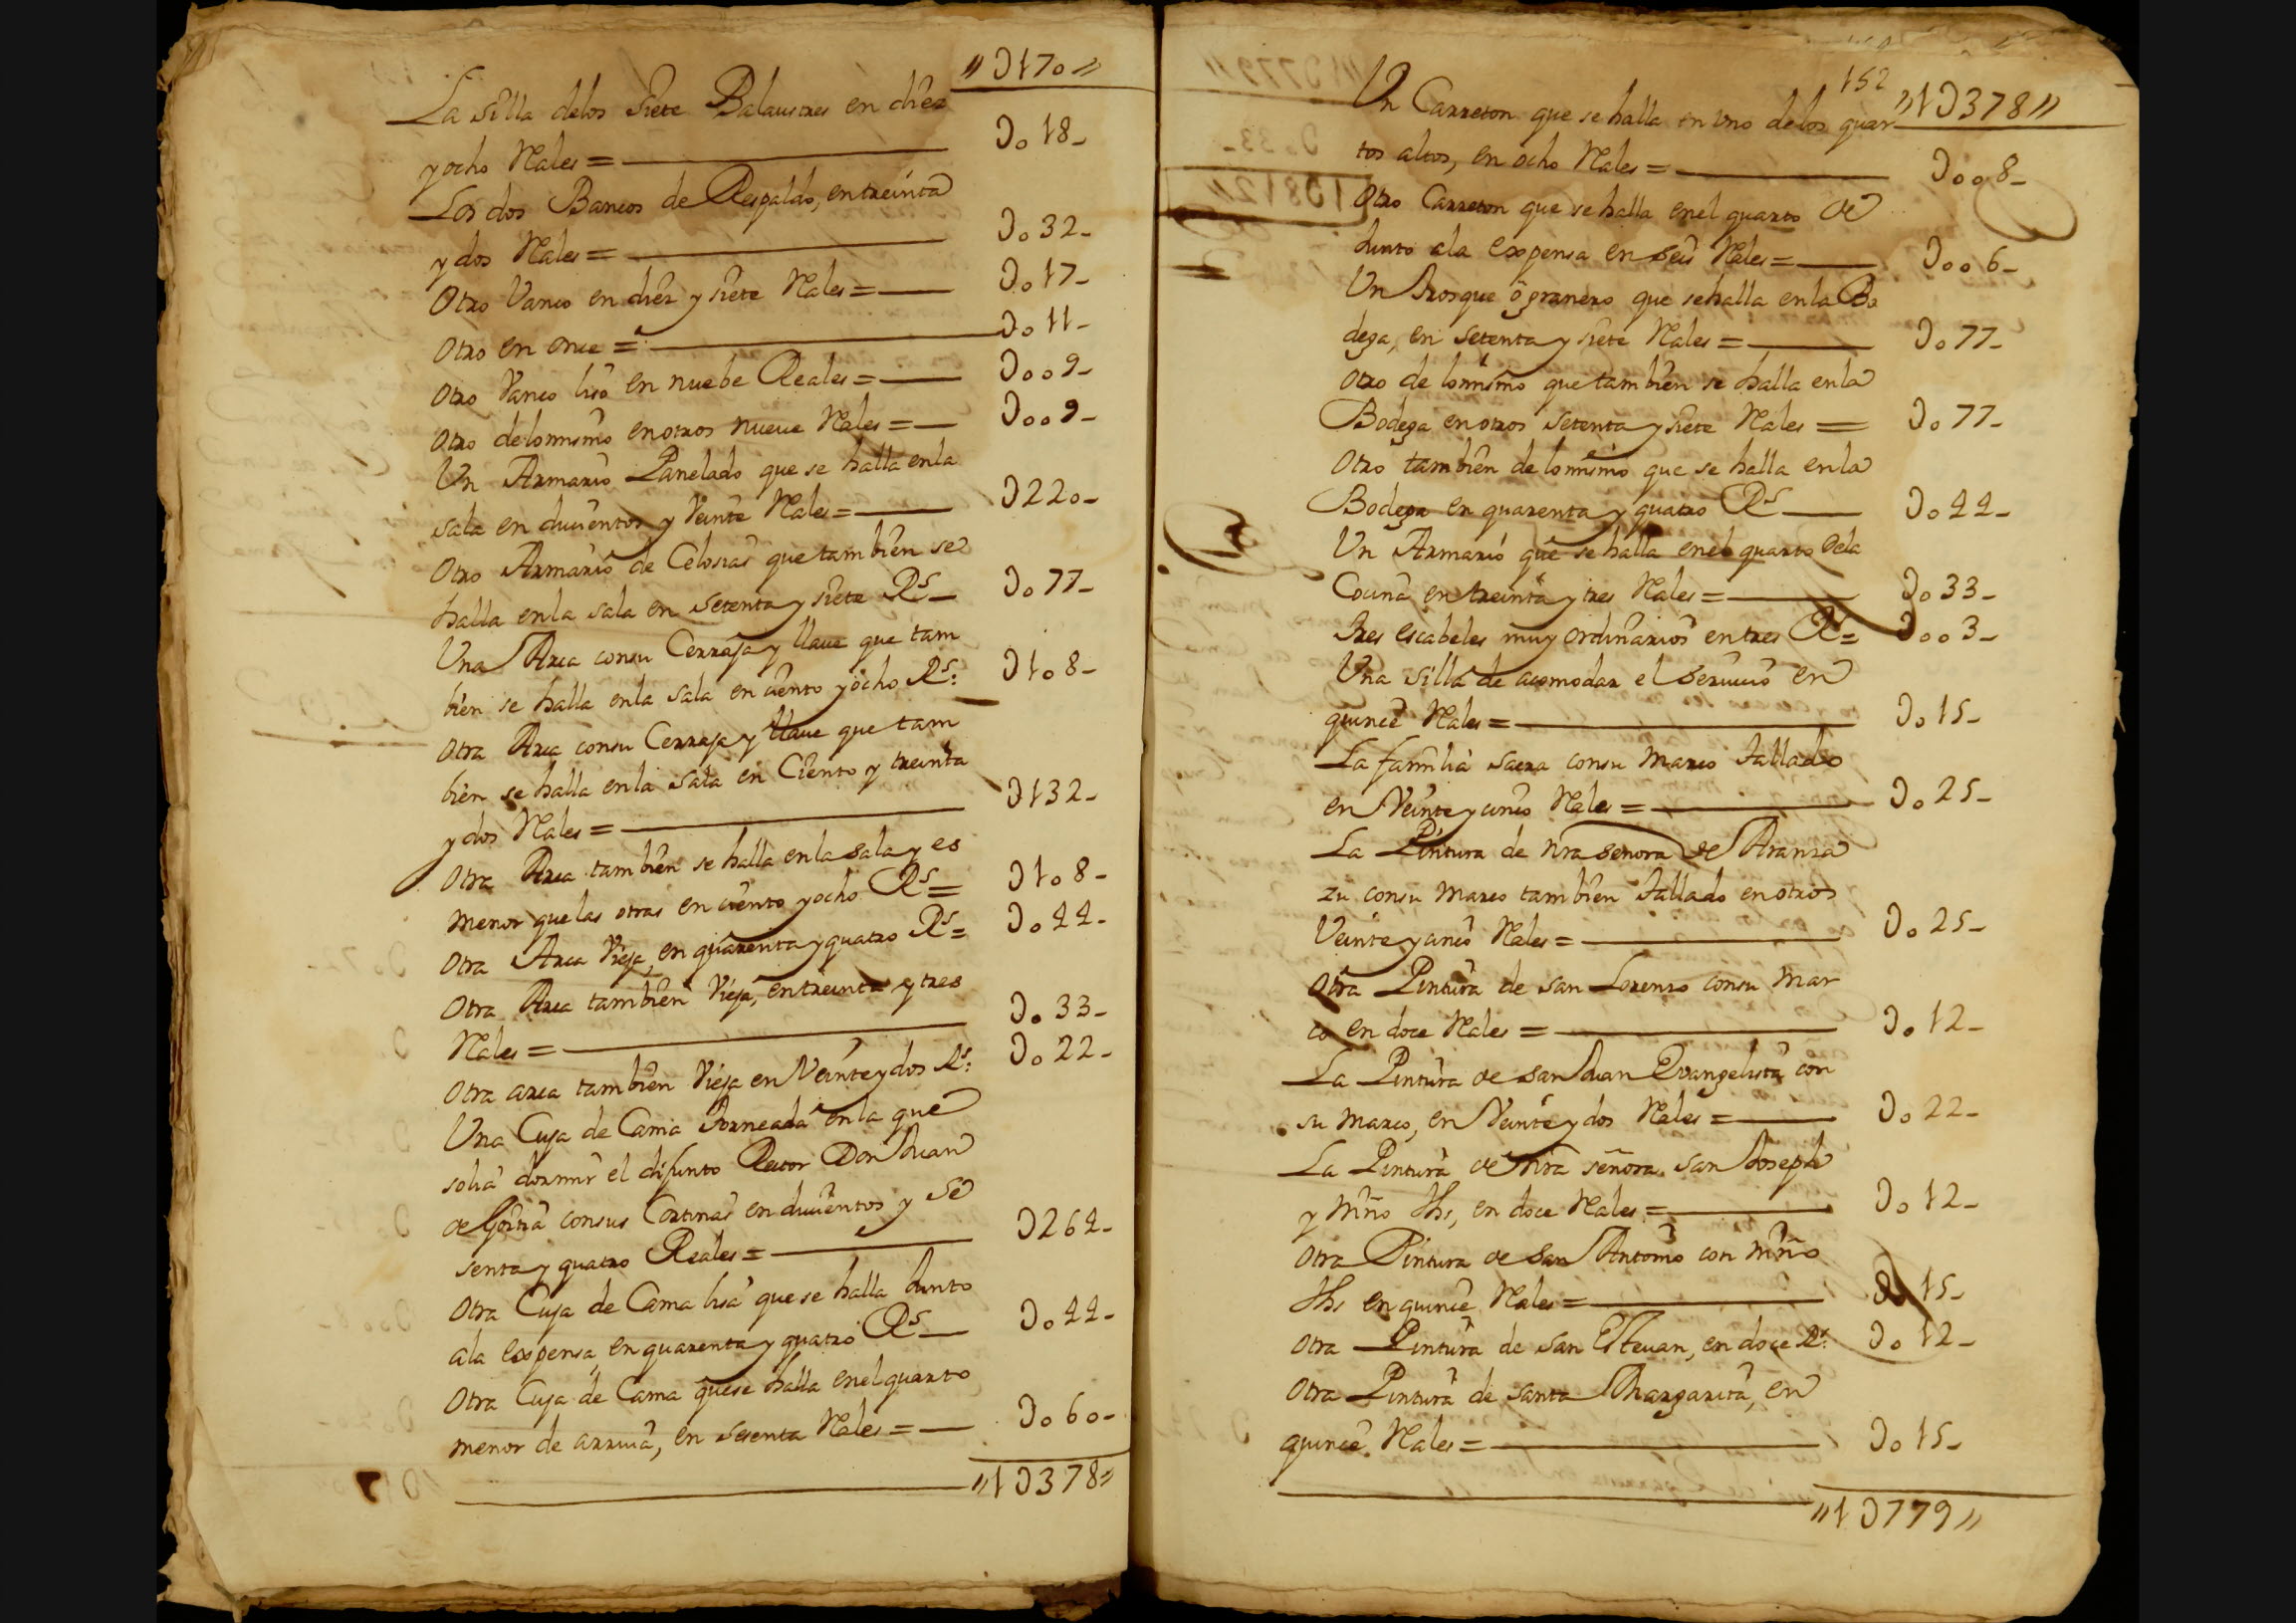 "Ɔ170"
La silla delos siete Balaustres en diez
y ocho Rales = Ɔo18-
Los dos Bancos de Respaldo, en treinta
y dos Rales = Ɔo32-
Otro Vanco en diez y siete Rales = Ɔo17-
Otro en once = Ɔo11-
Otro Vanco liso en nuebe Reales = Ɔoo9-
Otro delo mismo en otros nueue Rales = Ɔoo9-
Un Armario Panelado que se halla en la
sala en ducientos y Veinte Rales = Ɔ220-
Otro Armario de Celosias que tambien se
halla en la sala en setenta y siete Rs Ɔo77-
Una Arca con su Cerraja y llaue que tam
bien se halla en la sala en ciento y ocho Rs: Ɔ1o8-
Otra Arca con su Cerraja y llaue que tam
bien se halla en la sala en Ciento y treinta
y dos Rales = Ɔ132-
Otra Arca tambien se halla en la sala y es
menor que las otras en ciento y ocho Rs = Ɔ1o8-
Otra Arca Vieja, en quarenta y quatro Rs = Ɔo44-
Otra Arca tambien Vieja, en treinta y tres
Rales = Ɔo33-
Otra arca tambien Vieja en Veinte y dos Rs: Ɔo22-
Una Cuja de Cama torneada en la que
solia dormir el difunto Rector Don Juan
de Goiria con sus Cortinas en ducientos y se
senta y quatro Reales = Ɔ264-
Otra Cuja de Cama lisa que se halla Junto
ala expensa, en quarenta y quatro Rs Ɔo44-
Otra Cuja de Cama que se halla en el quarto
menor de arriua, en sesenta Rales = Ɔo6o-
"1Ɔ378"
152
"1Ɔ378"
Un Carreton que se halla en uno delos quar
tos altos, en ocho Rales = Ɔoo8-
Otro Carreton que se halla en el quarto de
Junto ala expensa en seis Rales = Ɔoo6-
Un Trosque ó granero que se halla en la Bo
dega, en setenta y siete Rales = Ɔo77-
Otro de lo mismo que tambien se halla en la
Bodega en otros setenta y siete Rales = Ɔo77-
Otro tambien de lo mismo que se halla en la
Bodega en quarenta y quatro Rs Ɔo44-
Un Armario que se halla en el quarto dela
Cocina en treinta y tres Rales = Ɔo33-
Tres escabeles muy ordinarios en tres Rs = Ɔoo3-
Una silla de acomodar el seruicio en
quince Rales = Ɔo15-
La familia sacra con su Marco tallado
en Veinte y cinco Rales = Ɔo25-
La Pintura de nra señora de Aranza
zu con su Marco tambien tallado en otros
Veinte y cinco Rales = Ɔo25-
Otra Pintura de san Lorenzo con su Mar
co en doce Rales = Ɔo12-
La Pintura de san Juan Evangelista con
su Marco, en Veinte y dos Rales = Ɔo22-
La Pintura de Nra señora san Joseph
y Niño Jhs, en doce Rales = Ɔo12-
Otra Pintura de San Antonio con Niño
Jhs en quince Rales = Ɔo15-
Otra Pintura de san Esteuan, en doce Rs: Ɔo12-
Otra Pintura de santa Margarita, en
quince Rales = Ɔo15-
"1Ɔ779"